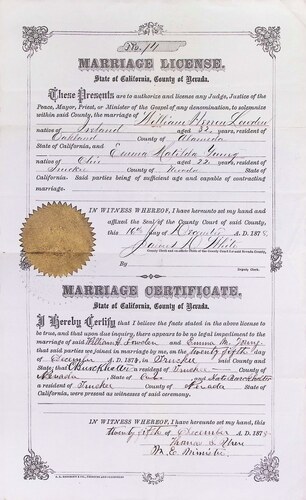 No. 14
MARRIAGE LICENSE.
State of California, County of Nevada.
These Presents are to authorize and license any Judge, Justice of the
Peace, Mayor, Priest, or Minister of the Gospel of any denomination, to solemnize
within said County, the marriage of William
native of Ireland aged 33 years, resident of
Oakland County of Alameda
State of California, and Emma Matilda Young
native of Ohio aged 22 years, resident of
Truckee County of Nevada State of
California. Said parties being of sufficient age and capable of contracting
marriage.
IN WITNESS WHEREOF, I have hereunto set my hand and
affixed the Seal of the County Court of said County,
this 16th day of December A.D. 187
James White
By
Deputy Clerk.
MARRIAGE CERTIFICATE.
State of California, County of Nevada.
I Hereby Certify that I believe the facts stated in the above license to
be true, and that upon due inquiry, there appears to be no legal impediment to the
marriage of said William H. and Emma M. Young
that said parties were joined in marriage by me, on the twenty fifth day
of December A.D. 187 in Truckee said County and
State; that a resident of Truckee County of
Nevada State of and
a resident of Truckee County of Nevada State of
California, were present as witnesses of said ceremony.
IN WITNESS WHEREOF, I have hereunto set my hand, this
twenty fifth of December A.D. 187
Thomas
Minister